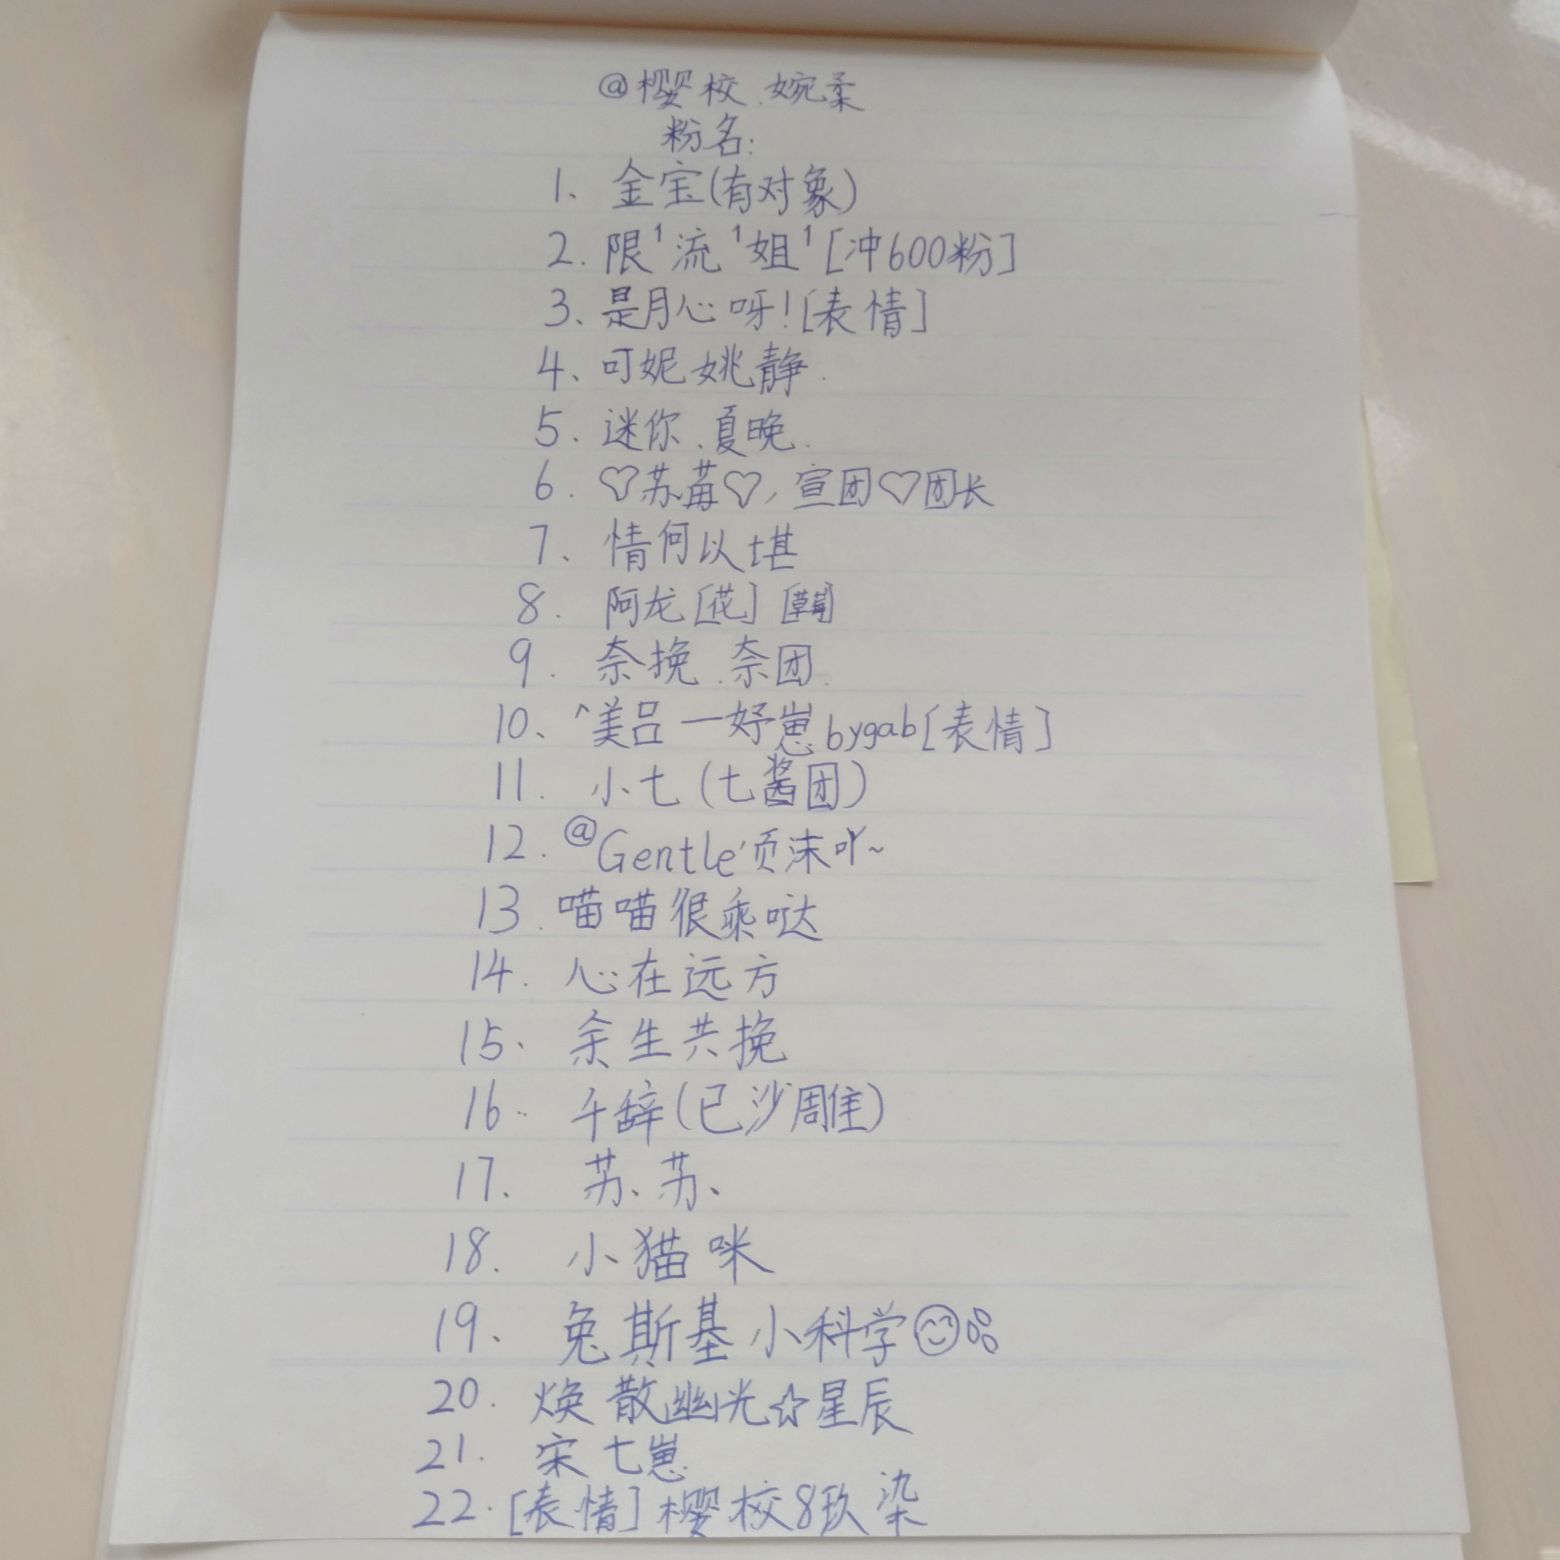 @樱校.婉柔
粉名:
1、金宝(有对象)
2.限¹流¹姐¹[冲600粉]
3、是月心呀![表情]
4、可妮姚静.
5.迷你.夏晚.
6.♡苏莓♡,宣团♡团长
7、情何以堪
8.阿龙[花]
9.奈挽.奈团.
10、^美吕一妤崽bygab[表情]
11.小七(七酱团)
12.@Gentle'页沫吖~
13.喵喵很乘哒
14.心在远方
15.余生共挽
16.千辞(已沙雕)
17.苏、苏、
18.小猫咪
19、兔斯基小科学
20.焕散幽光☆星辰
21.宋七崽.
22.[表情]樱校8玖染